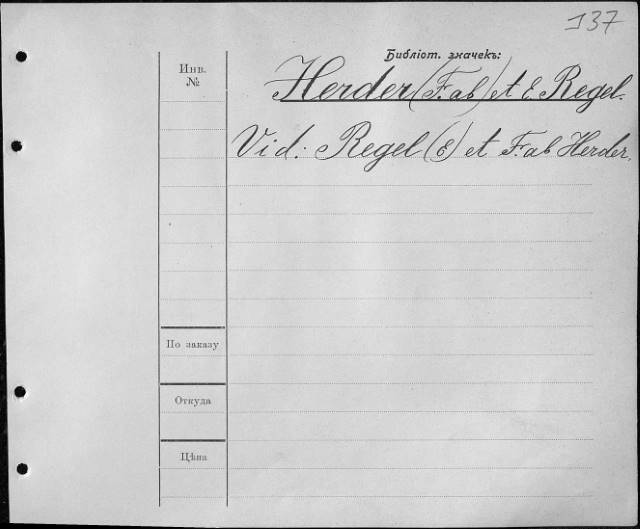 137
Библіот. значекъ:
Инв.
№
Herder (F. ab) et E. Regel.
Vid: Regel (E) et F. ab Herder.
По заказу
Откуда
Цѣна